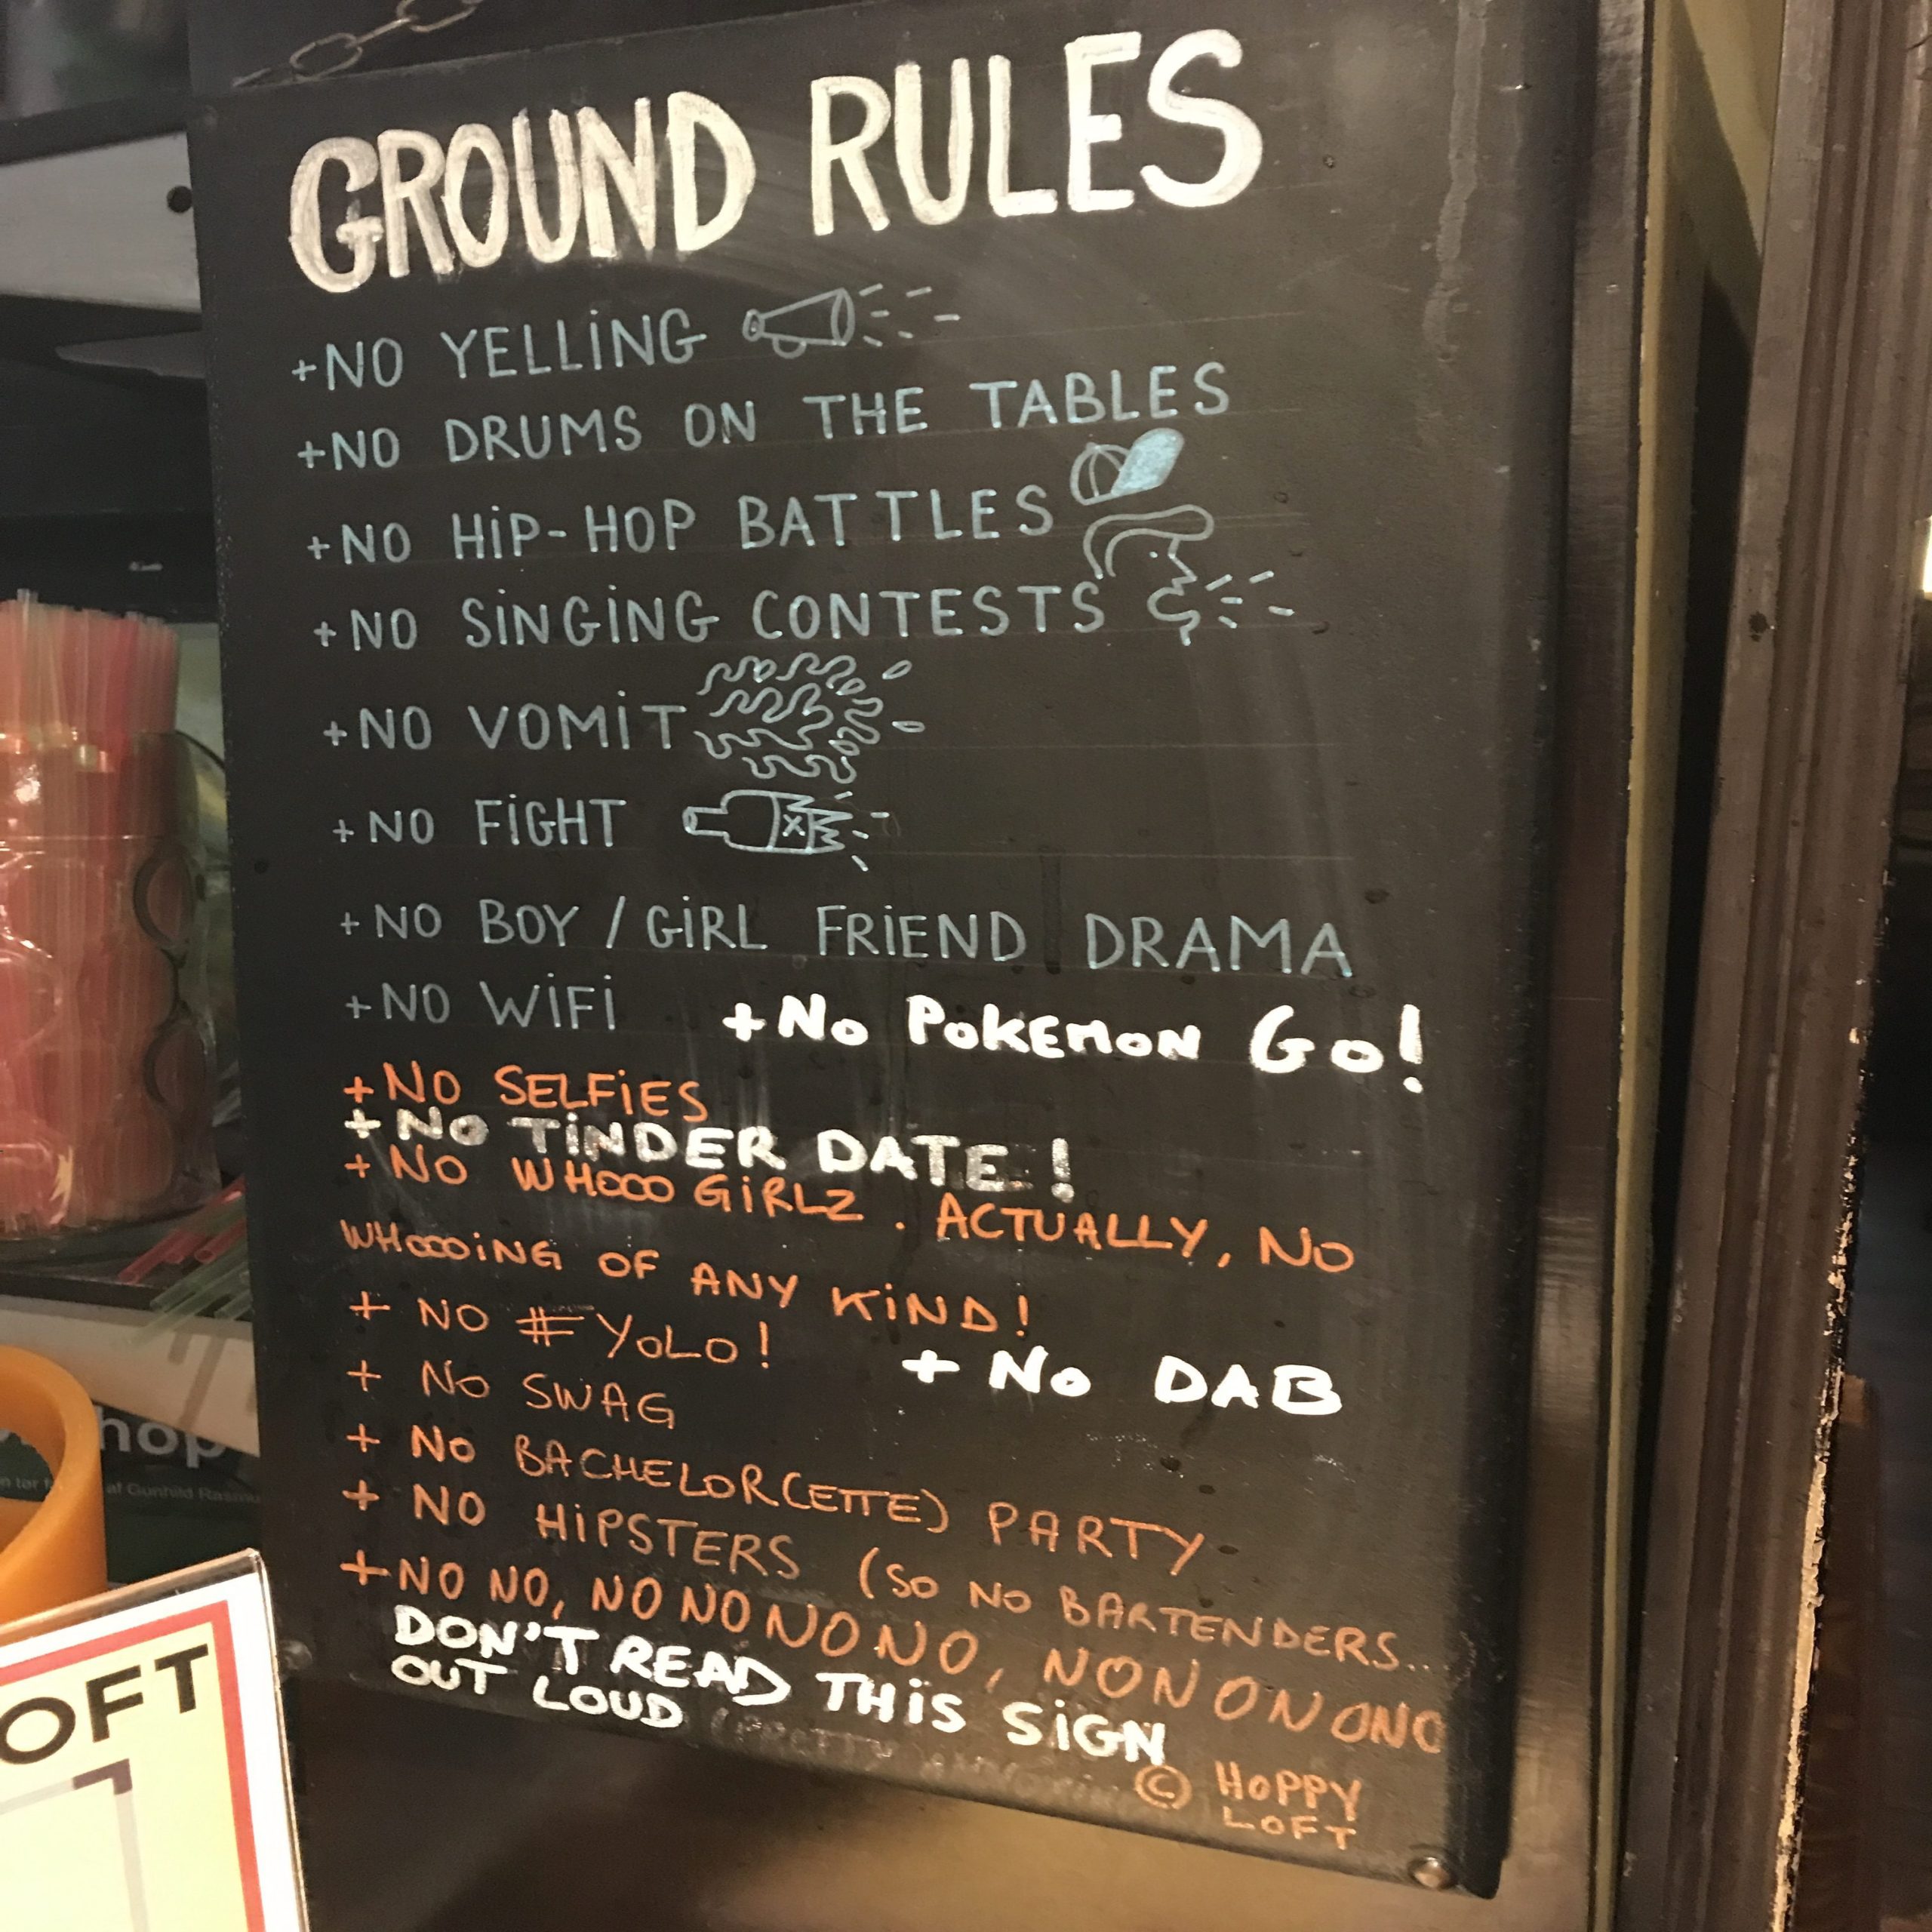 GROUND RULES
+NO YELLING
+NO DRUMS ON THE TABLES
+NO HIP-HOP BATTLES
+NO SINGING CONTESTS
+NO VOMIT
+NO FIGHT
X
+NO BOY / GIRL FRIEND DRAMA
+NO WIFI
+No POKEMON Go!
+NO SELFIES
+No TINDER DATE!
+NO WHOOO GIRLZ. ACTUALLY, NO
WHOOOING OF ANY KIND!
+ NO #YOLO!
+ No DAB
+ No SWAG
+ No BACHELOR(ETTE) PARTY
+ NO HIPSTERS (SO NO BARTENDERS...
+NO NO, NO NO NO NO, NO NO NO NO
DON'T READ THIS SIGN
OUT LOUD
© HOPPY
LOFT
hop
Gunhild
OFT